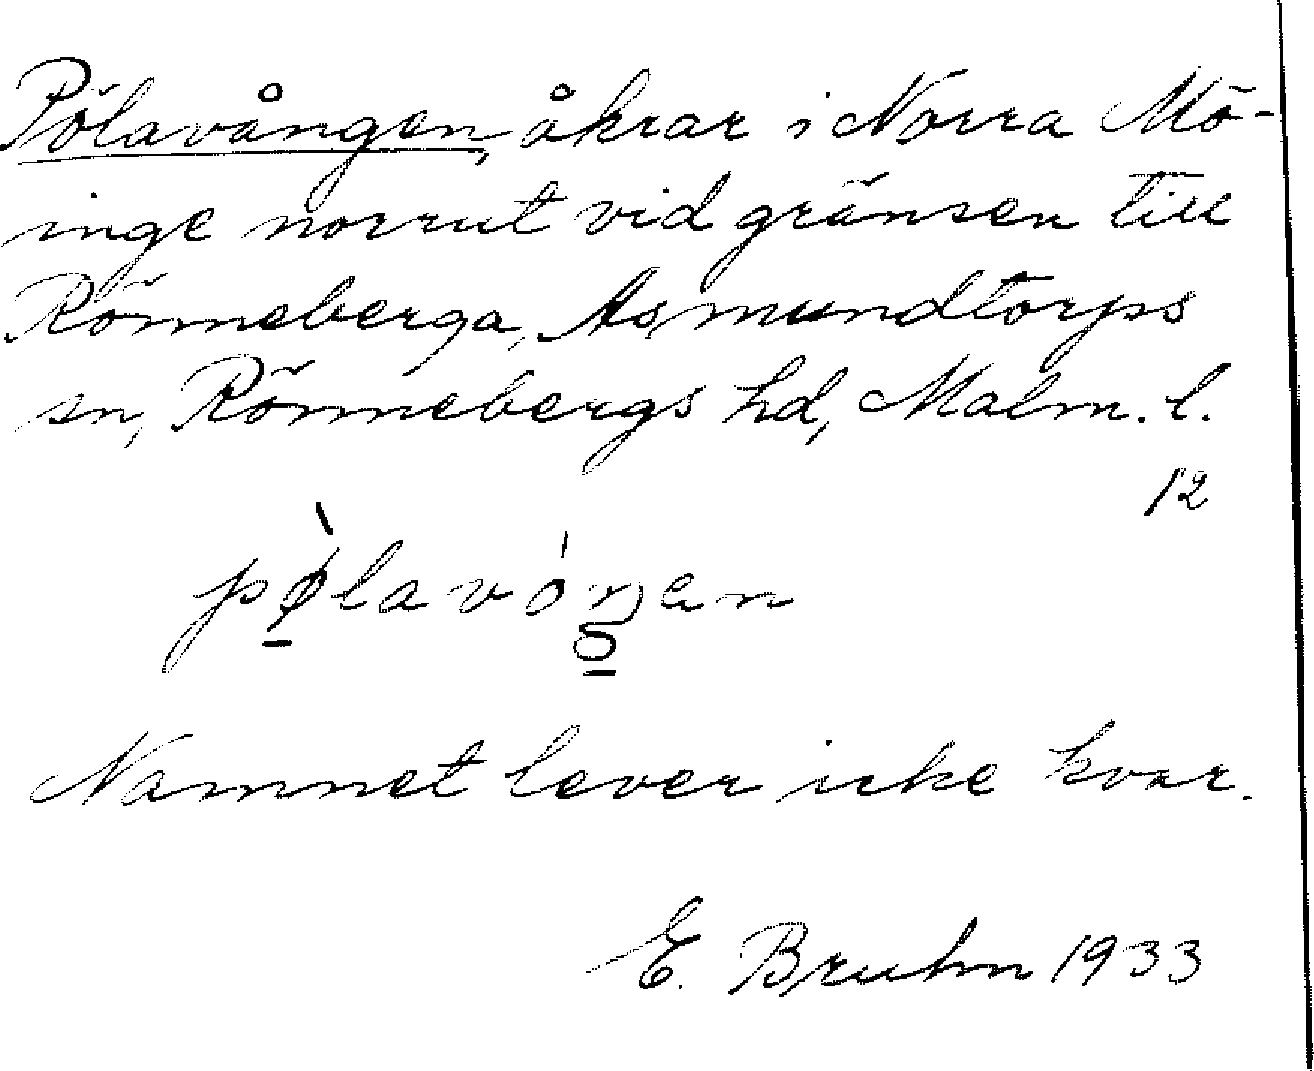 Pölavången, åkrar i Norra Mö-
inge norrut vid gränsen till
Rönneberga, Asmundtorps
sn, Rönnebergs hd, Malm. l.
12
pø̠̀lavóŋ̠ən
Namnet lever icke kvar.
E. Bruhn 1933